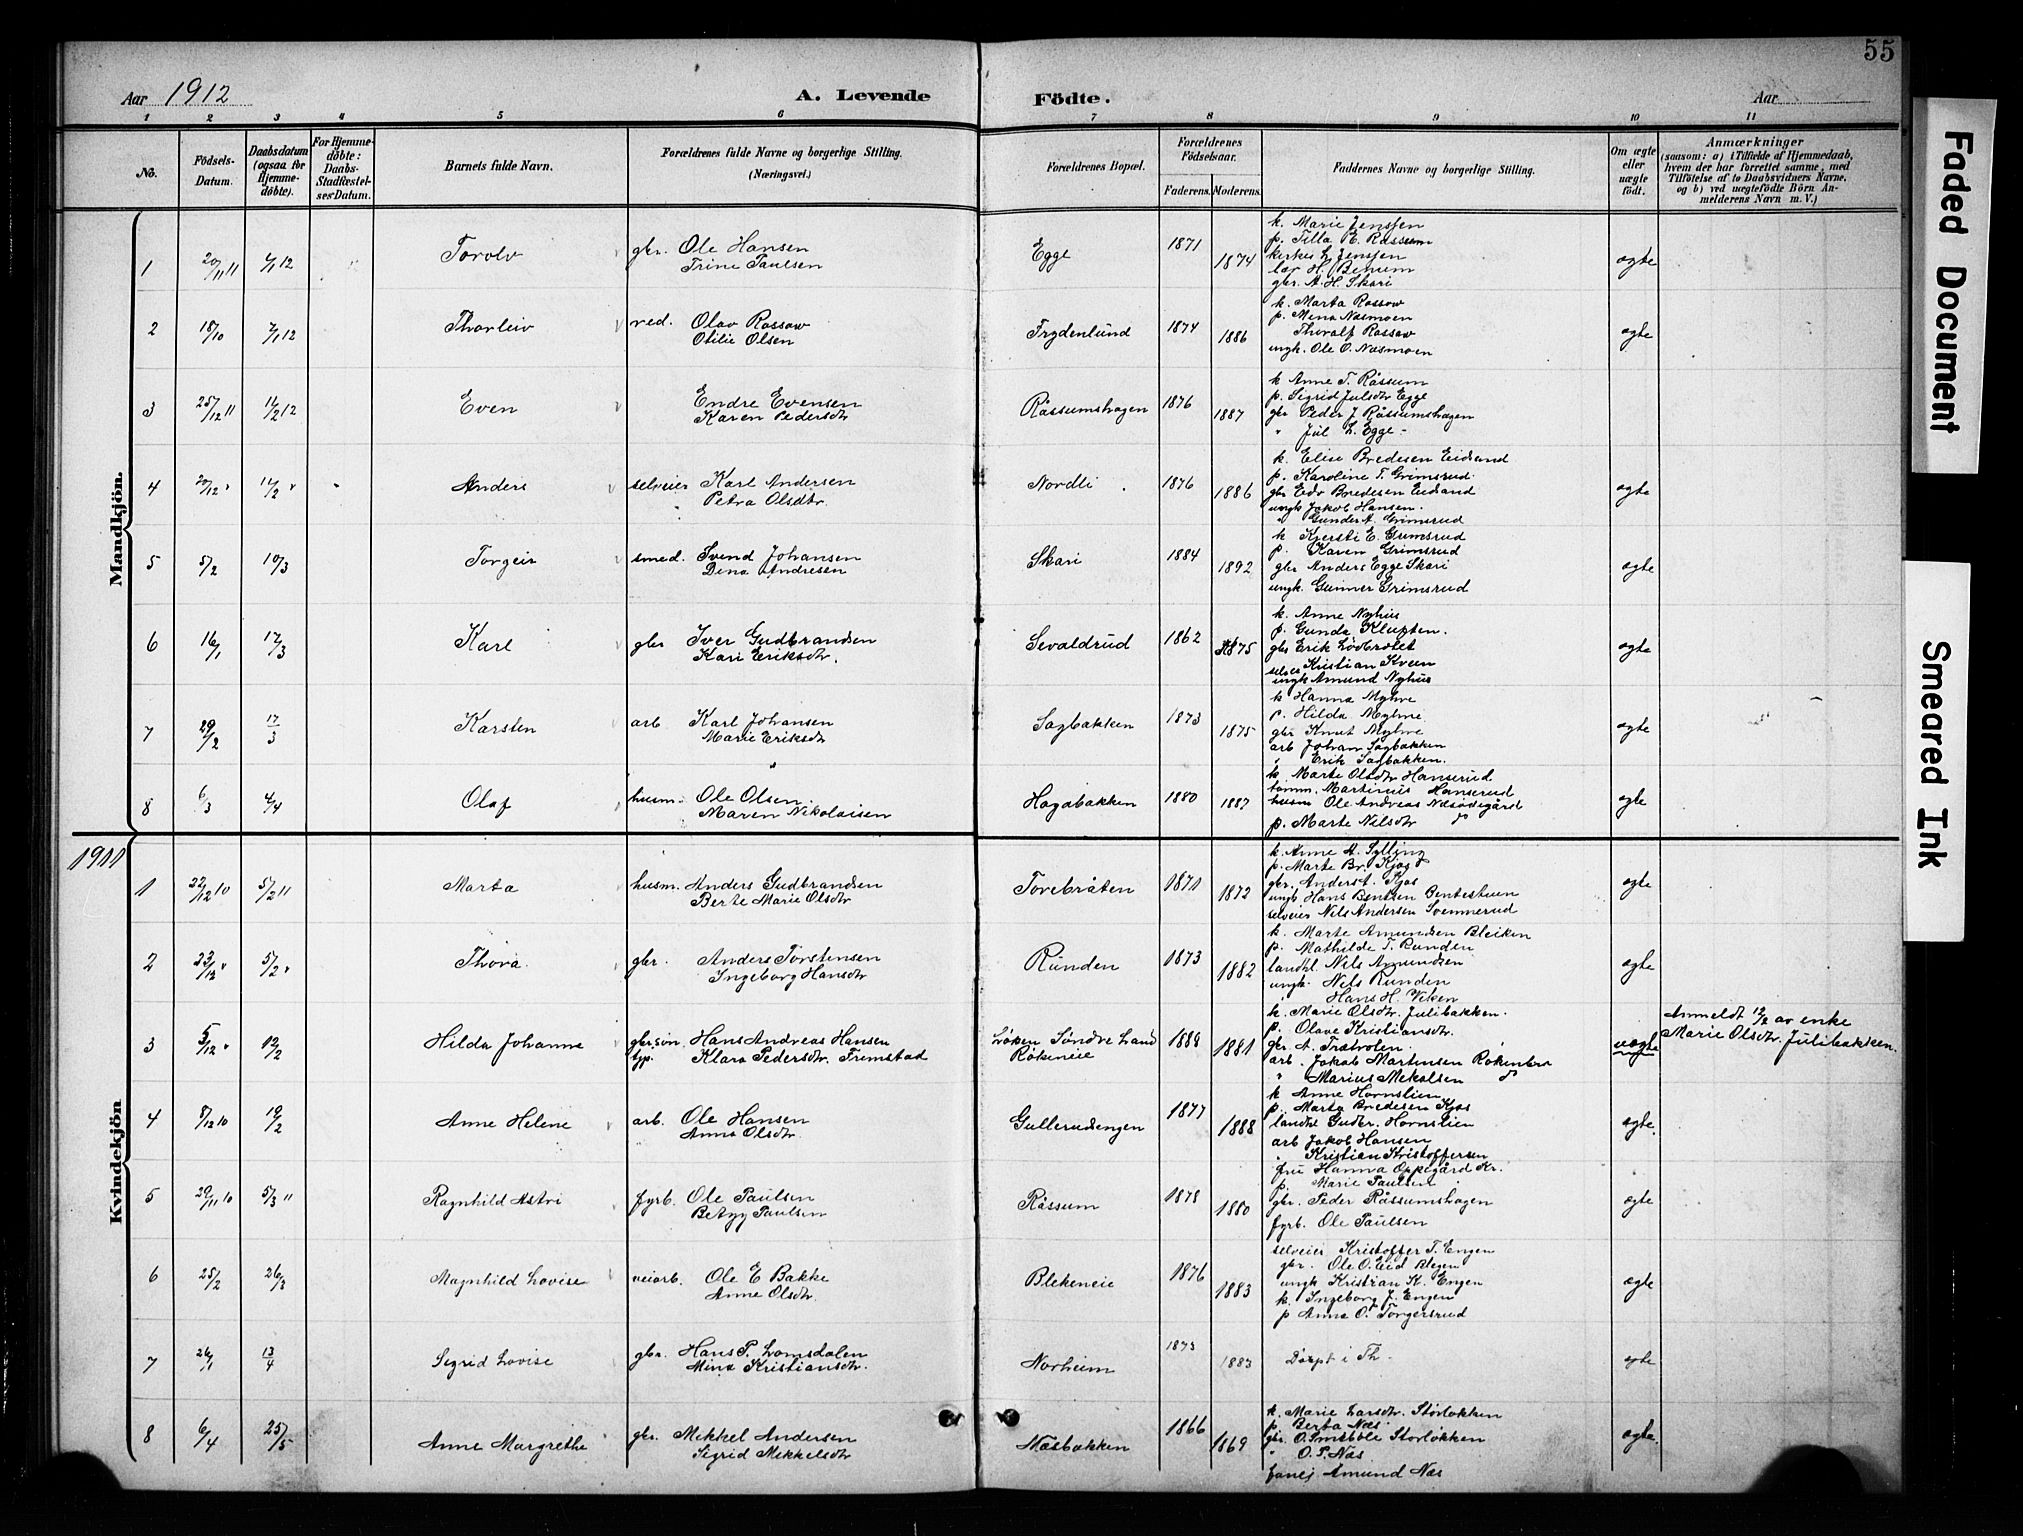 55
Aar 1912 A. Levende Födte. Aar
1 2 3 4 5 6 7 8 9 10 11
No.
Födsels-Datum.
Daabsdatum (ogsaa for Hjemme-döbte).
For Hjemme-döbte: Daabs-Stadfæstel-ses Datum.
Barnets fulde Navn.
Forældrenes fulde Navne og borgerlige Stilling.
(Næringsvei.)
Forældrenes Bopæl.
Forældrenes Födselsaar.
Faderens. Moderens.
Faddernes Navne og borgerlige Stilling.
Om ægte eller uægte födt.
Anmærkninger
(saasom: a) i Tilfælde af Hjemmedaab, hvem der har forrettet samme, med Tilföielse af to Daabsvidners Navne, og b) ved uægtefödte Börn An-melderens Navn m. V.)
Mandkjön.
1 20/11 11 7/1 12 Torolv gbr. Ole Hansen
Trine Paulsen
Egge 1871 1874
k. Marie Jenssen
p. Tilla E. Rossum
kirkes L. Jenssen
lær H. Benum
gbr. A. H. Skari
ægte
2 18/10 7/1 12 Thorleiv red. Olav Rossow
Otilie Olsen
Frydenlund 1874 1886
k. Marta Rossow
p. Mena Næsmoen
Thoralf Rossow
ungk. Ole O. Næsmoen
ægte
3 25/12 11 11/2 12 Even Endre Evensen
Karen Pedersdtr
Råssumshagen 1876 1887
k Anne T. Råssum
p. Sigrid Julsdtr Egge
gbr Peder J. Råssumshagen
" Jul L. Egge
ægte
4 20/12 " 11/2 " Anders selveier Karl Andersen
Petra Olsdtr.
Nordli 1876 1886
k. Elise Bredesen Eidsand
p. Karoline T. Grimsrud
gbr Edv Bredesen Eidsand
ungk Jakob Hansen.
" Gunder A. Grimsrud
ægte
5 5/2 10/3 Torgeir smed. Svend Johansen
Dina Andresen
Skari 1884 1892
k Kjersti E. Grimsrud
p. Karen Grimsrud
gbr Anders Egge Skari
ungk. Gunner Grimsrud
ægte
6 16/1 17/3 Karl gbr Iver Gudbrandsen
Kari Eriksdtr.
Sevaldrud 1862 1875
k. Anne Nyhus
p. Gunda Kluften.
gbr Erik Lødbrotet
selvei Kristian Kveen
ungk Amund Nyhus
ægte
7 29/2 17/3 Karsten arb Karl Johansen
Marie Eriksdtr
Sagbakken 1873 1875
k Hanna Myhre
p. Hilda Myhre
gbr Knut Myhre
arb Johan Sagbakken
" Erik Sagbakken.
ægte
8 6/3 4/4 Olaf husm. Ole Olsen
Maren Nikolaisen
Hagabakken 1880 1887
k. Marte Olsdtr Hanserud
tømm. Martinius Hanserud
husm Ole Andreas Næsødegård
p. Marte Nilsdtr do
ægte
1911
Kvindekjön
1 22/12 10 5/2 11 Marta husm. Anders Gudbrandsen
Berte Marie Olsdtr
Torebråten 1871 1872
k. Anne A. Sylling
p. Marte Br. Kjos
gbr. Anders T. Kjos
ungk Hans Bentsen Bentestuen
selveier Nils Andersen Svennerud
ægte
2 23/12 " 5/2 " Thora gbr. Anders Torstensen
Ingeborg Hansdtr
Runden 1873 1882
k. Marte Amundsen Bleiken
p. Mathilde T. Runden
landhl. Nils Amundsen
ungk. Nils Runden
" Hans H. Viken
ægte
3 5/12 " 12/2 Hilda Johanne gbr.søn. Hans Andreas Hansen
typ. Klara Pedersdtr. Trimstad
Løken Søndre Land
Røkeneie
1888 1881
k. Marie Olsdtr. Julibakken.
p. Olave Kristiansdtr.
gbr A. Træholen
arb. Jakob Martinsen Røkenbra
" Marius Mekalsen do
uægte
Anmeldt 12/2 av enke
Marie Olsdtr. Julibakken.
4 8/12 10 19/2 Anne Helene arb. Ole Hansen
Anna Olsdtr.
Gullerudsengen 1877 1888
k Anne Hornslien
p. Marta Bredesen Kjos
landhl Guder. Hornslien
arb Jakob Hansen
" Kristian Kristoffersen
ægte.
5 29/11 10 5/3 11 Ragnhild Astri fyrb. Ole Paulsen
Betzy Paulsen
Råssum 1878 1880
fru Hanna Oppegård Kr.
p. Marie Paulsen
gbr. Peder Råssumshagen
fyrb. Ole Paulsen
ægte
6 25/2 26/3 Magnhild Lovise veiarb. Ole E Bakke
Anne Olsdtr.
Blekeneie 1876 1883
selveier Kristoffer T. Engen
gbr. Ole O. Eid Blegen
ungk Kristian K. Engen
k. Ingeborg J. Engen
p Anna O. Torgersrud
ægte
7 26/1 13/4 Sigrid Lovise gbr. Hans P. Lomsdalen
Mina Kristiansdtr.
Norheim 1873 1883
Døpt i Th
ægte
8 6/4 25/5 Anne Margrethe gbr. Mikkel Andersen
Sigrid Mikkelsdtr
Næsbakken 1866 1869
k. Marie Larsdtr. Storløkken
p. Berta Næs
gbr. O. Smsbøle Storløkken
" O. P. Næs
Amund Næs
ægte.
Faded Document
Smeared Ink